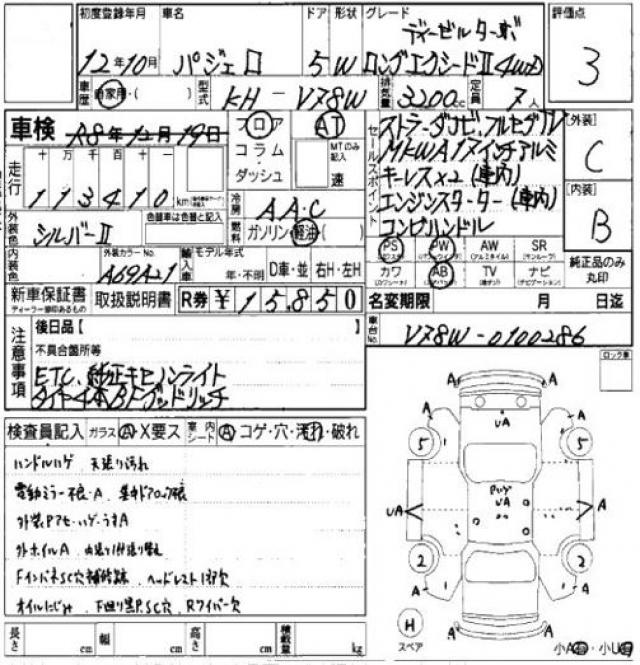 初度登録年月 車名 ドア 形状 グレード 評価点
ディーゼルターボ
12年10月 パジェロ 5W ロングエクシードⅡ4WD 3
車歴 自家用・( ) 型式 KH-V78W 排気量 3200cc 定員 7人
車検 R8年12月19日 フロア AT
コラム ダッシュ MTのみ記入 速
走行 十 万 千 百 十
113410 km
セールスポイント
ストラーダナビ、フルセグTV
MKWA17インチアルミ
キーレスx2(車内)
エンジンスターター(車内)
コンビハンドル
[外装] C
[内装] B
外装色 シルバーⅡ 色替車は色替と記入
冷房 AAC
燃料 ガソリン・軽油( )
内装色 外装カラーNo. A69A21
輸入車 モデル年式 年・不明 D車・並 右H・左H
PS PW AW SR
カワ AB TV ナビ
純正品のみ丸印
新車保証書 取扱説明書 R券 ¥15,850
ディーラー捺印あるもの
名変期限 月 日迄
車台No. V78W-0100286
注意事項
後日品【
不具合箇所等
ETC、純正キセノンライト
タイヤ4本BFグッドリッチ
ロック車
検査員記入 ガラス A・X要ス 室内シート A コゲ・穴・汚れ・破れ
ハンドルハゲ 天張り汚れ
電動ミラー不良・A 集中ドアロック不良
外装Pアセ・ハゲ・うすA
外ホイルA
FインパネSC穴補修跡 ヘッドレスト1部欠
オイルにじみ 下廻り黒P.SC穴 Rワイパー欠
長さ cm 幅 cm 高さ cm 積載量 kg
A A
A UA A
5 5
Pハゲ
UA UA A
2 2
A A
H スペア
A A
小A・小U